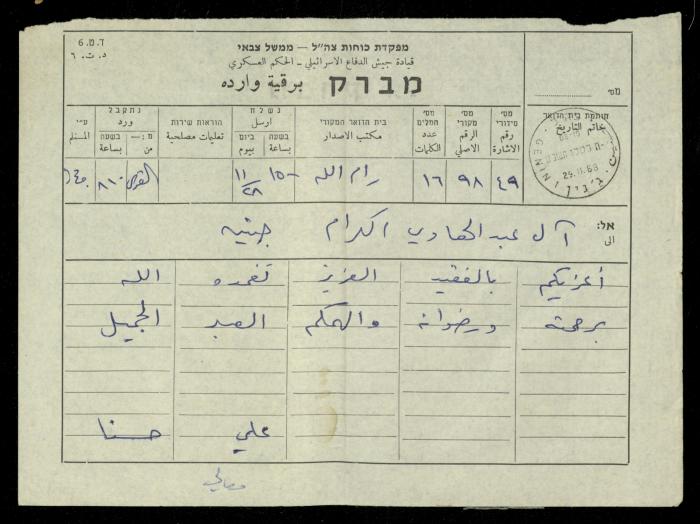 ד.ט. 6
د.ت. ٦
מפקדת כוחות צה"ל — ממשל צבאי
قيادة جيش الدفاع الاسرائيلي - الحكم العسكري
מברק برقية وارده
מס'
חותמת בית הדואר
خاتم التاريخ
מס' סידורי
رقم الاشارة
מס' מקורי
الرقم الاصلي
מס' המלים
عدد الكلمات
בית הדואר המקורי
مكتب الاصدار
נשלח
ارسل
בשעה
بساعة
ביום
بيوم
הוראות שירות
تعليمات مصلحية
נתקבל
ورد
מ:—
من
בשעה
بساعة
ע"י
المستلم
٤٩ ٩٨ ١٦ رام الله ١٥٠٠ ١١/٢٨ القدس ٨١٠
JENIN ג'נין
29.11.68
אל:
الى
آل عبد الهادي الكرام جنين
أعزيكم بالفقيد العزيز تغمده الله
برحمته ورضوانه والهمكم الصبر الجميل
علي حسنا